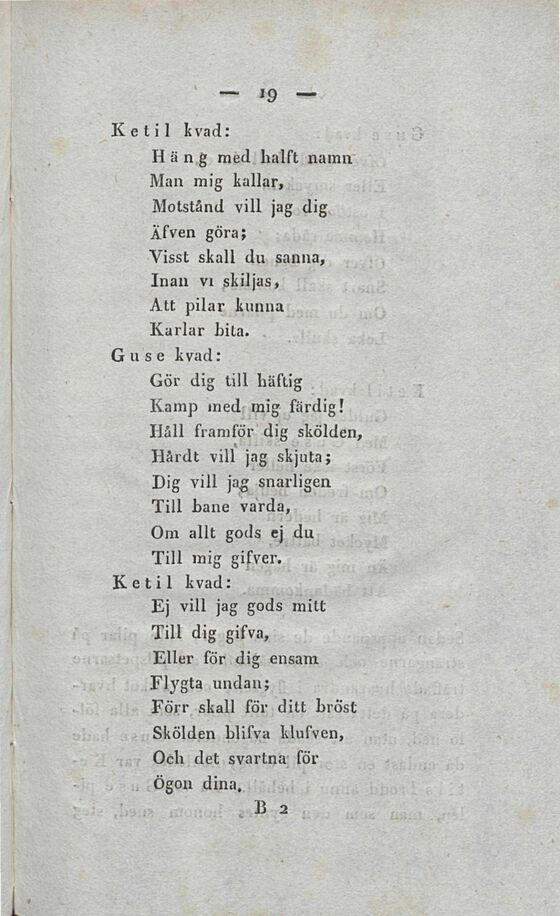 — 19 —
Ketil kvad:
Häng med halft namn
Man mig kallar,
Motstånd vill jag dig
Äfven göra;
Visst skall du sanna,
Inan vi skiljas,
Att pilar kunna
Karlar bita.
Guse kvad:
Gör dig till häftig
Kamp med mig färdig!
Håll framför dig skölden,
Hårdt vill jag skjuta;
Dig vill jag snarligen
Till bane varda,
Om allt gods ej du
Till mig gifver.
Ketil kvad:
Ej vill jag gods mitt
Till dig gifva,
Eller för dig ensam
Flygta undan;
Förr skall för ditt bröst
Skölden blifva klufven,
Och det svartna för
Ögon dina.
B 2